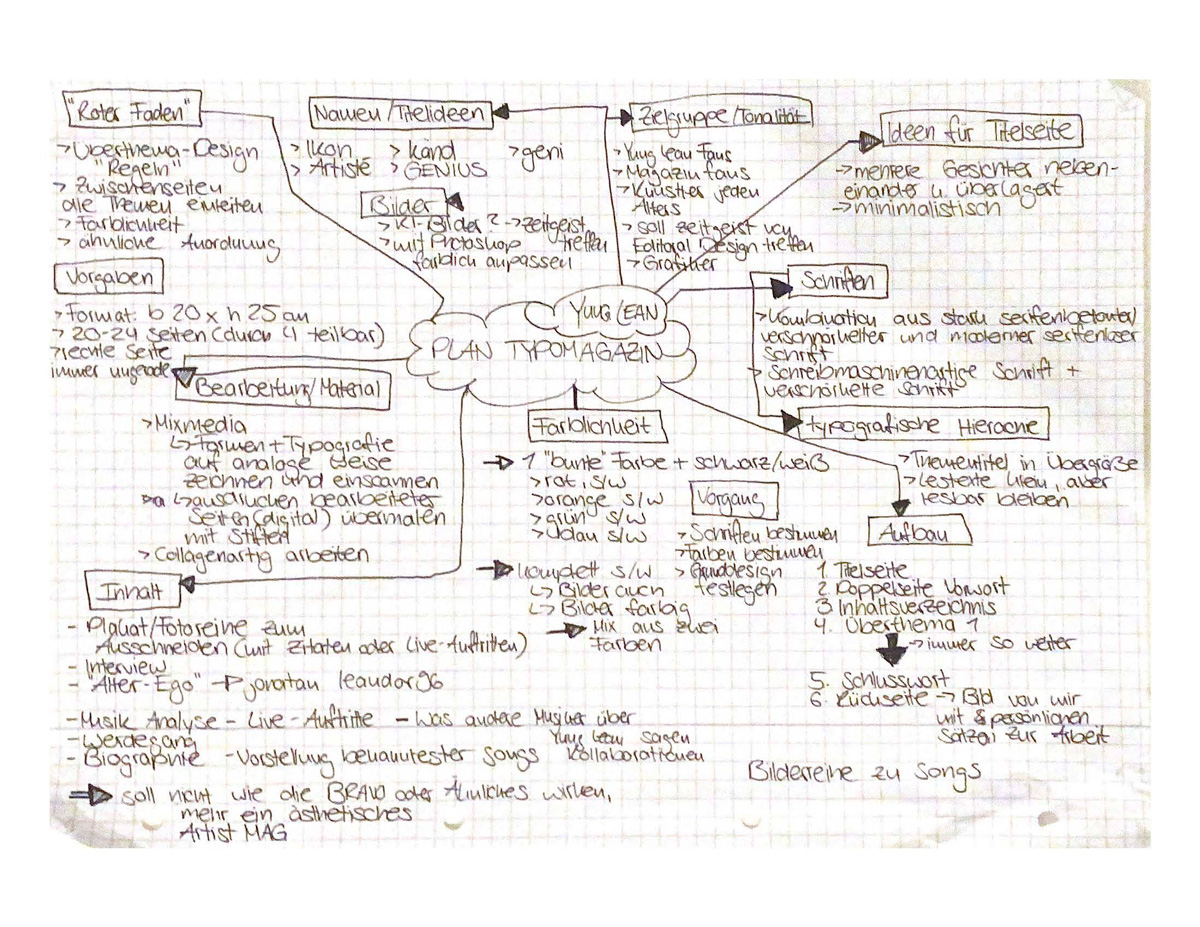 "Roter Faden"
> Überthema-Design
"Regeln"
> Zwischenseiten
die Themen einleiten
> Farblichkeit
> ähnliche Anordnung
Namen/Titelideen
> Ikon
> Artiste
> känd
> GENIUS
> geni
Bilder
> KI-Bilder? -> zeitgeist
treffen
> mit Photoshop
farblich anpassen
Zielgruppe/Tonalität
> Yung Lean Fans
> Magazin fans
> Künstler jeden
Alters
> soll zeitgeist von
Editoral Design treffen
> Grafiker
Ideen für Titelseite
-> mehrere Gesichter neben-
einander u. überlagert
-> minimalistisch
Vorgaben
> Format: b 20 x h 25 cm
> 20-24 Seiten (durch 4 teilbar)
> rechte Seite
immer ungerade
YUNG LEAN
PLAN TYPOMAGAZIN
Schriften
> Kombination aus stark serifenbetonter/
verschnörkelter und moderner serifenloser
Schrift
> Schreibmaschinenartige Schrift +
verschnörkelte Schrift
Bearbeitung/Material
> Mixmedia
↳ Formen + Typografie
auf analoge Weise
zeichnen und einscannen
↳ ausdrucken bearbeiteter
Seiten (digital) übermalen
mit Stiften
> Collagenartig arbeiten
Farblichkeit
-> 1 "bunte" Farbe + schwarz/weiß
> rot, s/w
> orange s/w
> grün s/w
> blau s/w
-> komplett s/w
↳ Bilder auch
↳ Bilder farbig
-> Mix aus zwei
Farben
Vorgang
> Schriften bestimmen
> Farben bestimmen
> Grunddesign
festlegen
typografische Hierache
> Thementitel in Übergröße
> Lestexte klein, aber
lesbar bleiben
Aufbau
1. Titelseite
2. Doppelseite Vorwort
3. Inhaltsverzeichnis
4. Überthema 1
-> immer so weiter
5. Schlusswort
6. Rückseite -> Bild von mir
mit persönlichen
Satz zur Arbeit
Inhalt
- Plakat/Fotoreihe zum
Ausschneiden (mit Zitaten oder Live-Auftritten)
- Interview
- "Alter-Ego" -> jonatan leandoer96
- Musik Analyse - Live-Auftritte - Was andere Musiker über
Yung Lean sagen
- Werdegang
- Biographie - Vorstellung bekanntester Songs Kollaborationen
Bilderreihe zu Songs
=> soll nicht wie die BRAVO oder Ähnliches wirken,
mehr ein ästhetisches
Artist MAG